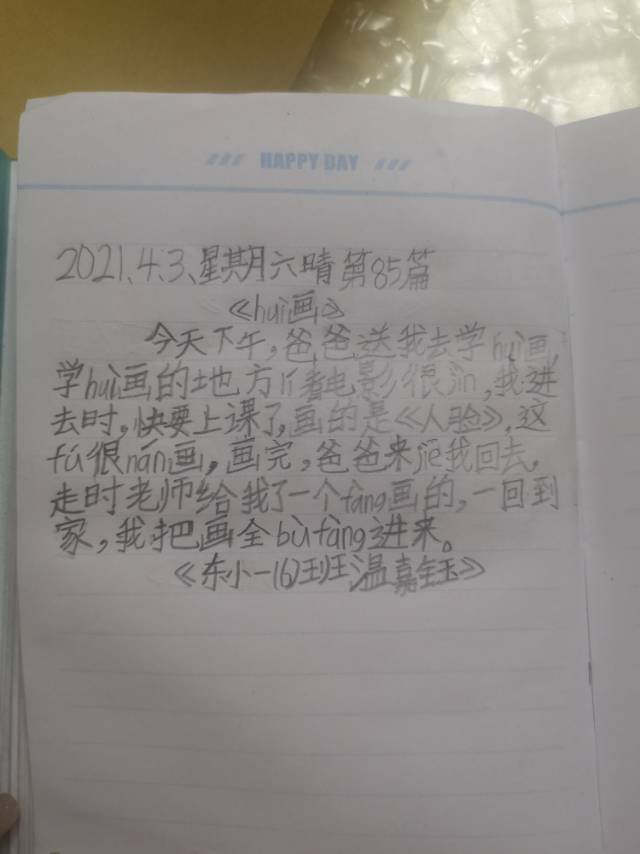 HAPPY DAY
2021.4.3、星期六晴第85篇
《huì画》
今天下午,爸爸送我去学huì画,
学huì画的地方lí着电影很jìn,我进
去时,快要上课了,画的是《人验》,这
fú很nán画,画完,爸爸来jiē我回去,
走时老师给我了一个fàng画的,一回到
家,我把画全bùfàng进来。
《东小一(6)班温嘉钰》